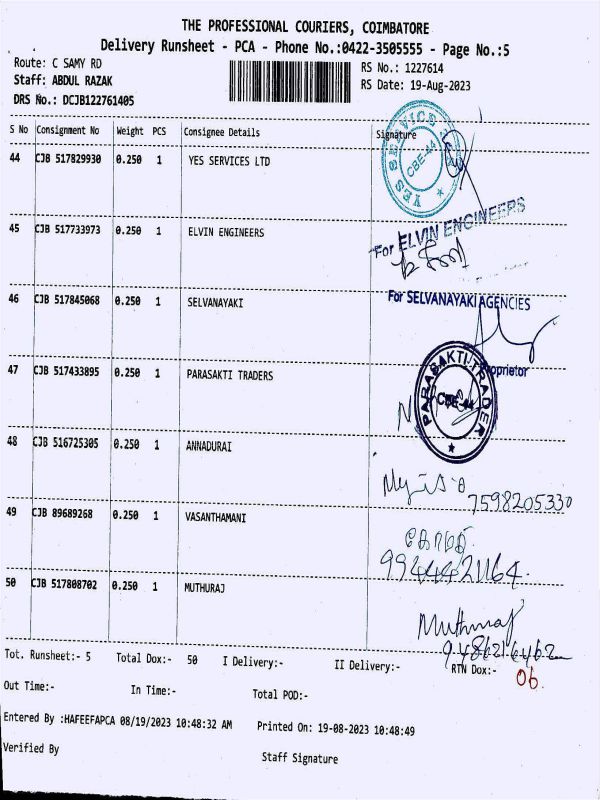 THE PROFESSIONAL COURIERS, COIMBATORE
Delivery Runsheet - PCA - Phone No.:0422-3505555 - Page No.:5
Route: C SAMY RD
RS No.: 1227614
Staff: ABDUL RAZAK
RS Date: 19-Aug-2023
DRS No.: DCJB122761405
S No Consignment No Weight PCS Consignee Details Signature
44 CJB 517829930 0.250 1 YES SERVICES LTD
YES SERVICES
CBE-44
45 CJB 517733973 0.250 1 ELVIN ENGINEERS
For ELVIN ENGINEERS
46 CJB 517845068 0.250 1 SELVANAYAKI
For SELVANAYAKI AGENCIES
Proprietor
47 CJB 517433895 0.250 1 PARASAKTI TRADERS
PARASAKTI TRADER
CBE-44
48 CJB 516725305 0.250 1 ANNADURAI
7598205330
49 CJB 89689268 0.250 1 VASANTHAMANI
9944421164.
50 CJB 517808702 0.250 1 MUTHURAJ
Muthuraj
9486216462
Tot. Runsheet:- 5 Total Dox:- 50 I Delivery:- II Delivery:- RTN Dox:- 06.
Out Time:- In Time:- Total POD:-
Entered By :HAFEEFAPCA 08/19/2023 10:48:32 AM Printed On: 19-08-2023 10:48:49
Verified By Staff Signature